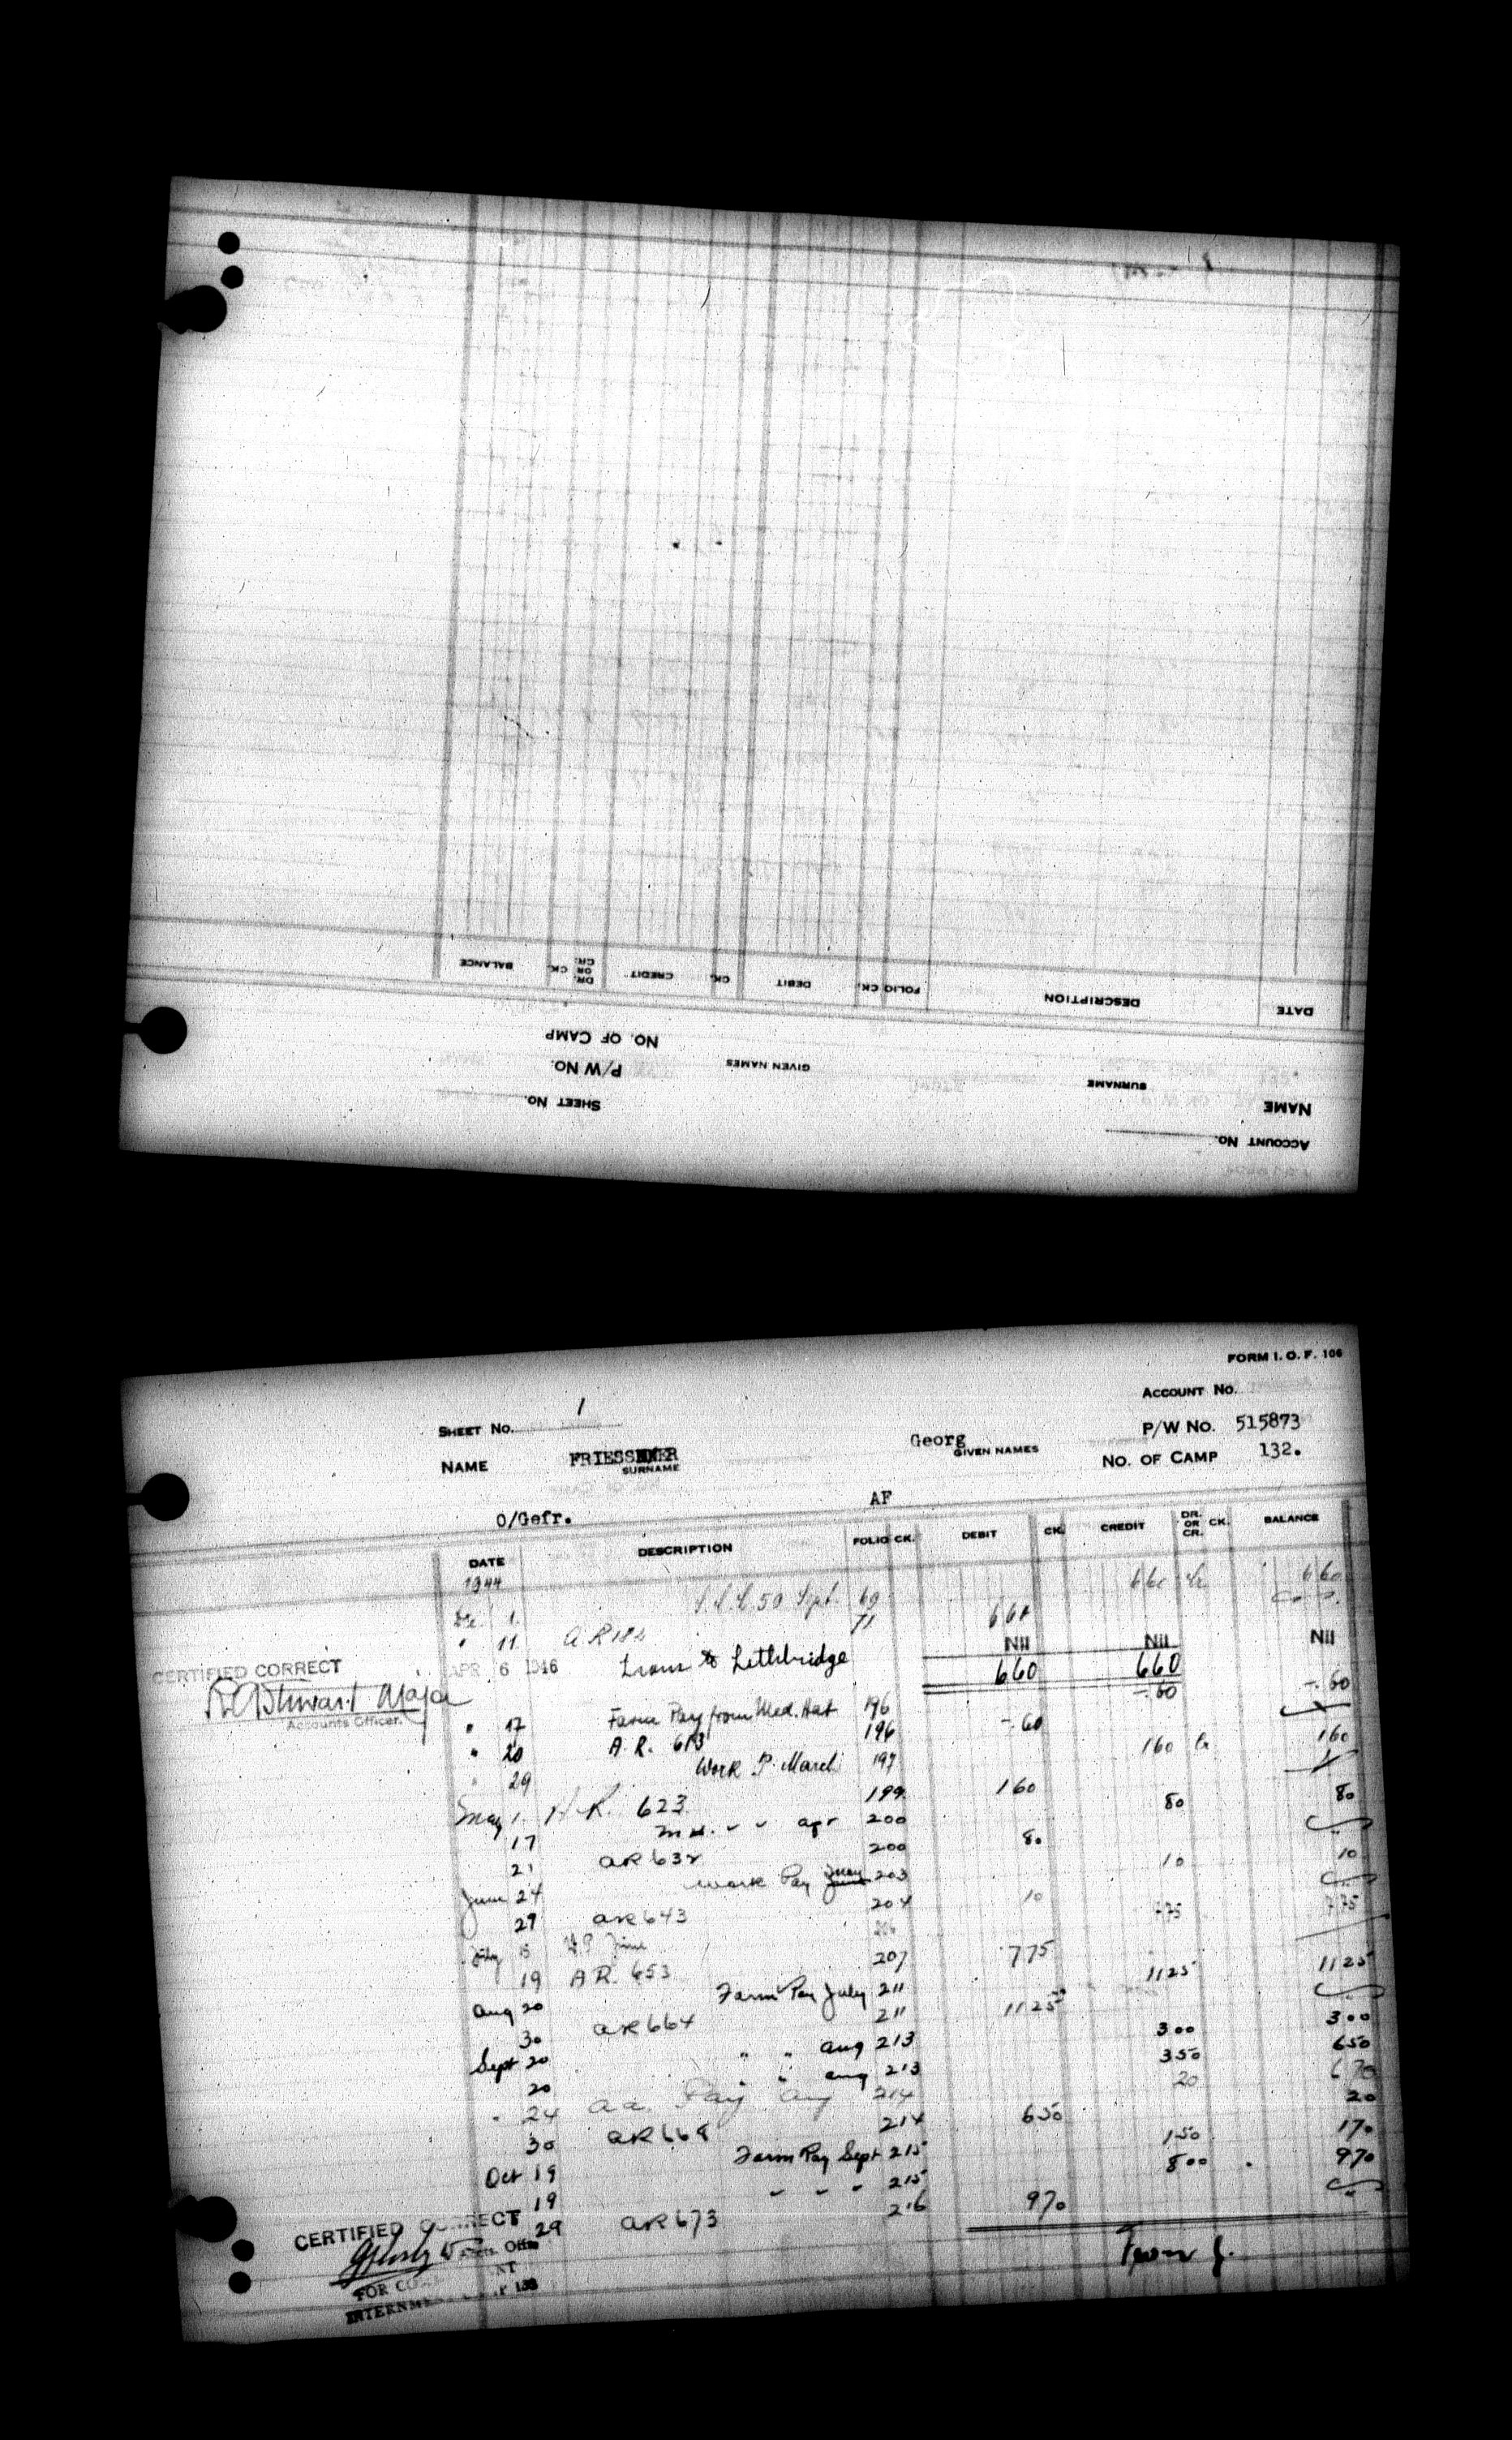 BALANCE DR. OR CR. CK. CREDIT CK. DEBIT FOLIO CK. DESCRIPTION DATE
NO. OF CAMP
P/W NO. GIVEN NAMES SURNAME
SHEET NO. NAME
ACCOUNT NO.
FORM I. O. F. 106
ACCOUNT NO.
SHEET NO. 1
P/W NO. 515873
NAME FRIESSNER Georg
SURNAME GIVEN NAMES
NO. OF CAMP 132.
O/Gefr. AF
DATE DESCRIPTION FOLIO CK. DEBIT CK. CREDIT DR. OR CR. CK. BALANCE
1944
1. 50 Sept. 69 660 Cr 660
" 11 AR 182 71 660
CERTIFIED CORRECT
APR 6 1946 Trans to Lethbridge Nil Nil Nil
660 660
Major
Accounts Officer.
" 17 Farm Pay from Med. Hat 196 -.60 -.60
" 20 A.R. 613 196 -.60
" 29 Work P. March 197 160 Cr 160
May 1. A.R. 623 199 160
17 " " apr 200 80 80
21 AR 632 200 80
June 24 Work Pay May June 203 10 10
27 AR 643 204 10
July 15 W.P. June 206 775 775
19 A.R. 653 207 775
Aug 20 Farm Pay July 211 1125 1125
30 AR 664 211 1125
Sept 20 " " aug 213 300 300
20 " " aug 213 350 650
" 24 aa Pay aug 214 20 670
30 AR 668 214 650 20
Oct 19 Farm Pay Sept 215 150 170
19 " " " 215 800 970
29 AR 673 216 970
CERTIFIED CORRECT
FOR
INTERNMENT